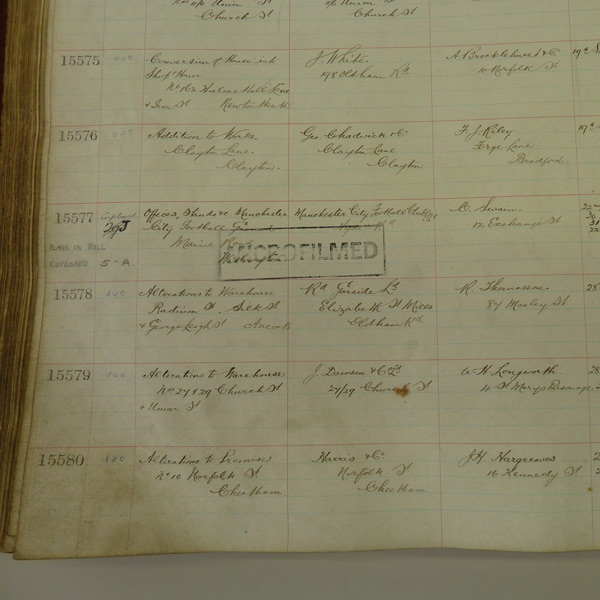 Union St
Church St
Union St
Church St
15575
Conversion of House into
Shop House
No 162 Hulme Hall Lane
& Iron St Newton Heath
J. White
198 Oldham Rd
A. Brocklehurst & Co
Norfolk St
19th
15576
Addition to Works
Clayton Lane
Clayton
Geo. Chadwick & Co
Clayton Lane
Clayton
F. J. Riley
Forge Lane
Bradford
19th
15577
Cupboard
29J
PLANS IN ROLL
CUPBOARD 5-A.
Offices, Stands &c Manchester
City Football Ground
Maine Road
Manchester City Football Club
C. Swain
17 Exchange St
22nd
MICROFILMED
15578
Alterations to Warehouse
Radium St. Silk St
& George Leigh St Ancoats
Rd Garside Ld
Elizabeth St Mills
Oldham Rd
R. Thomasson
84 Mosley St
28
15579
Alterations to Warehouse
No 27 & 29 Church St
& Union St
J. Dawson & Co Ld
27/29 Church St
W H Longworth
4 St Marys Parsonage
28
15580
Alterations to Premises
No 10 Norfolk St
Cheetham
Harris & Co
Norfolk St
Cheetham
J.H. Hargreaves
16 Kennedy St